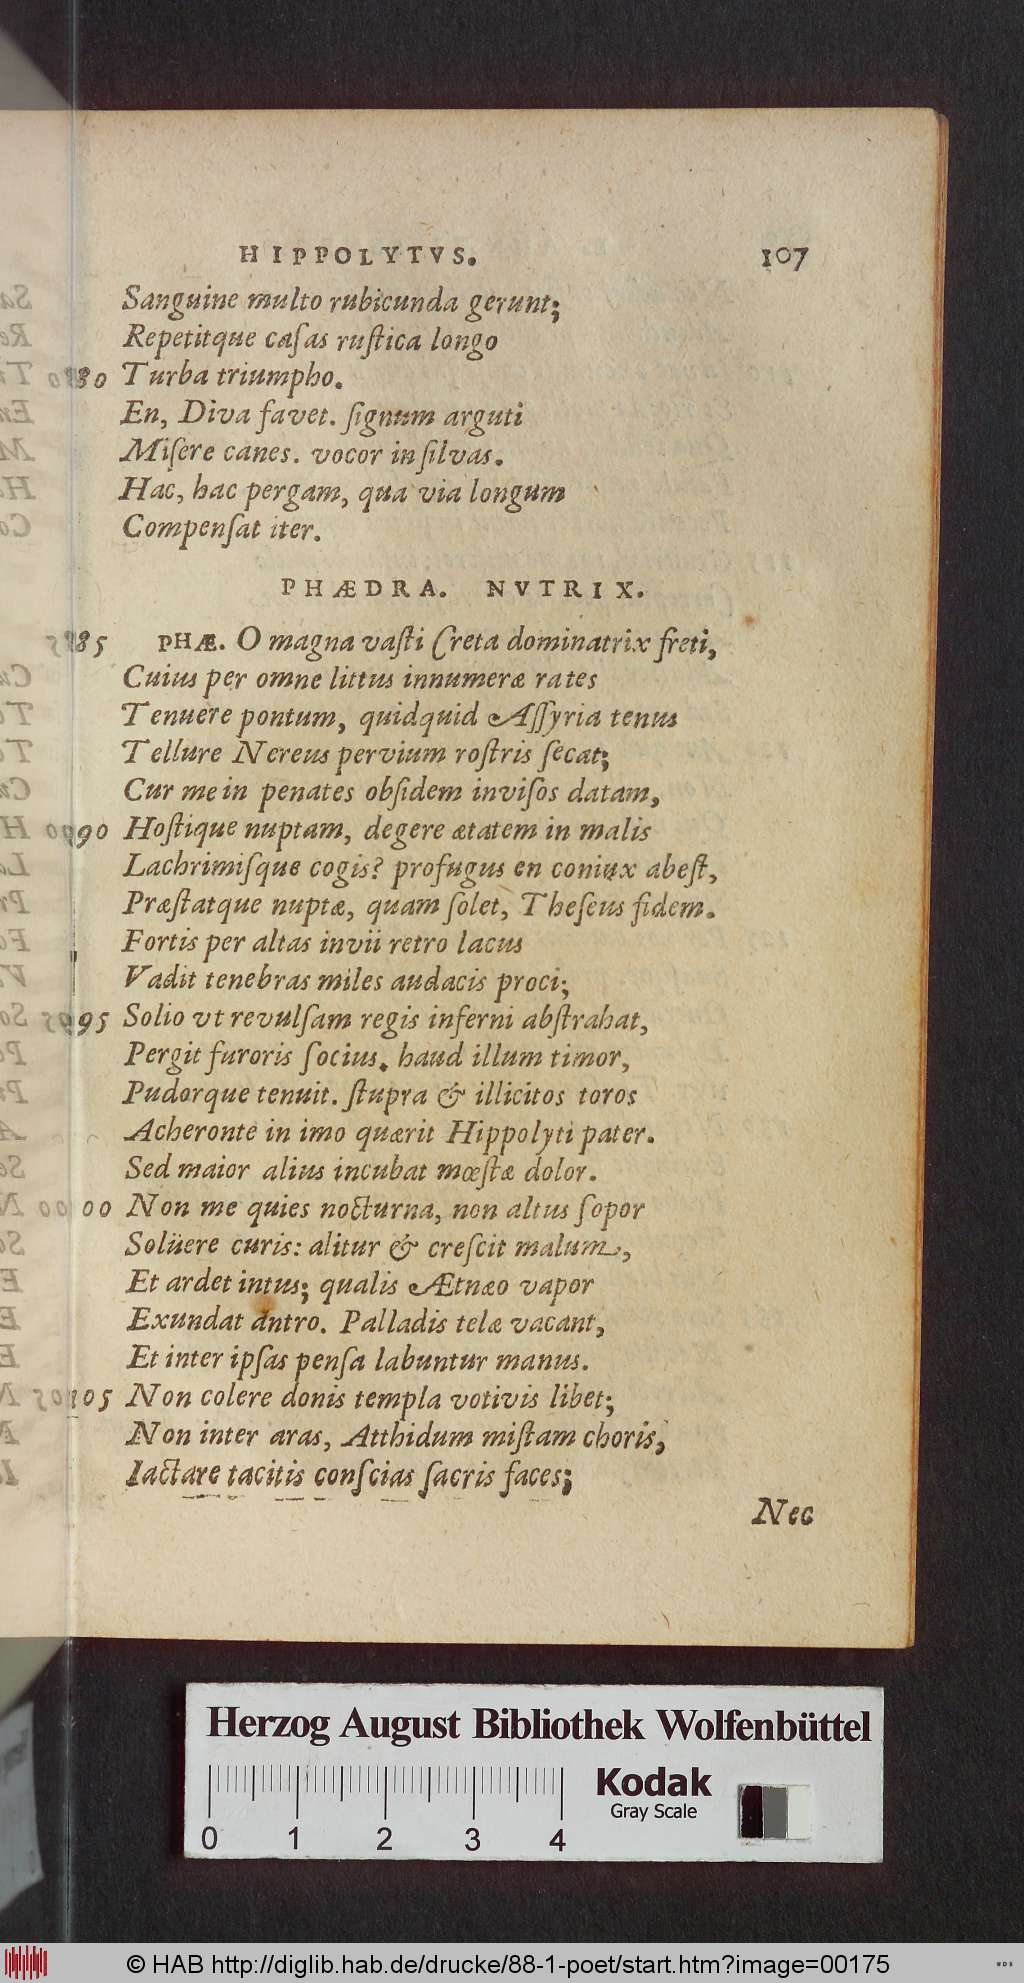 HIPPOLYTVS. 107
Sanguine multo rubicunda gerunt;
Repetitque caſas ruſtica longo
80 Turba triumpho.
En, Diva favet. ſignum arguti
Miſere canes. vocor in ſilvas.
Hac, hac pergam, qua via longum
Compenſat iter.
PHÆDRA. NVTRIX.
85 PHÆ. O magna vaſti Creta dominatrix freti,
Cuius per omne littus innumeræ rates
Tenuere pontum, quidquid Aſſyria tenus
Tellure Nereus pervium roſtris ſecat;
Cur me in penates obſidem inviſos datam,
90 Hoſtique nuptam, degere ætatem in malis
Lachrimiſque cogis? profugus en coniux abeſt,
Præſtatque nuptæ, quam ſolet, Theſeus fidem.
Fortis per altas invii retro lacus
Vadit tenebras miles audacis proci;
95 Solio vt revulſam regis inferni abſtrahat,
Pergit furoris ſocius. haud illum timor,
Pudorque tenuit. ſtupra & illicitos toros
Acheronte in imo quærit Hippolyti pater.
Sed maior alius incubat mœſtæ dolor.
00 Non me quies nocturna, non altus ſopor
Solüere curis: alitur & creſcit malum,
Et ardet intus; qualis Ætnæo vapor
Exundat antro. Palladis telæ vacant,
Et inter ipſas penſa labuntur manus.
05 Non colere donis templa votivis libet;
Non inter aras, Atthidum miſtam choris,
Iactare tacitis conſcias ſacris faces;
Nec
Herzog August Bibliothek Wolfenbüttel
Kodak
Gray Scale
0 1 2 3 4
© HAB http://diglib.hab.de/drucke/88-1-poet/start.htm?image=00175